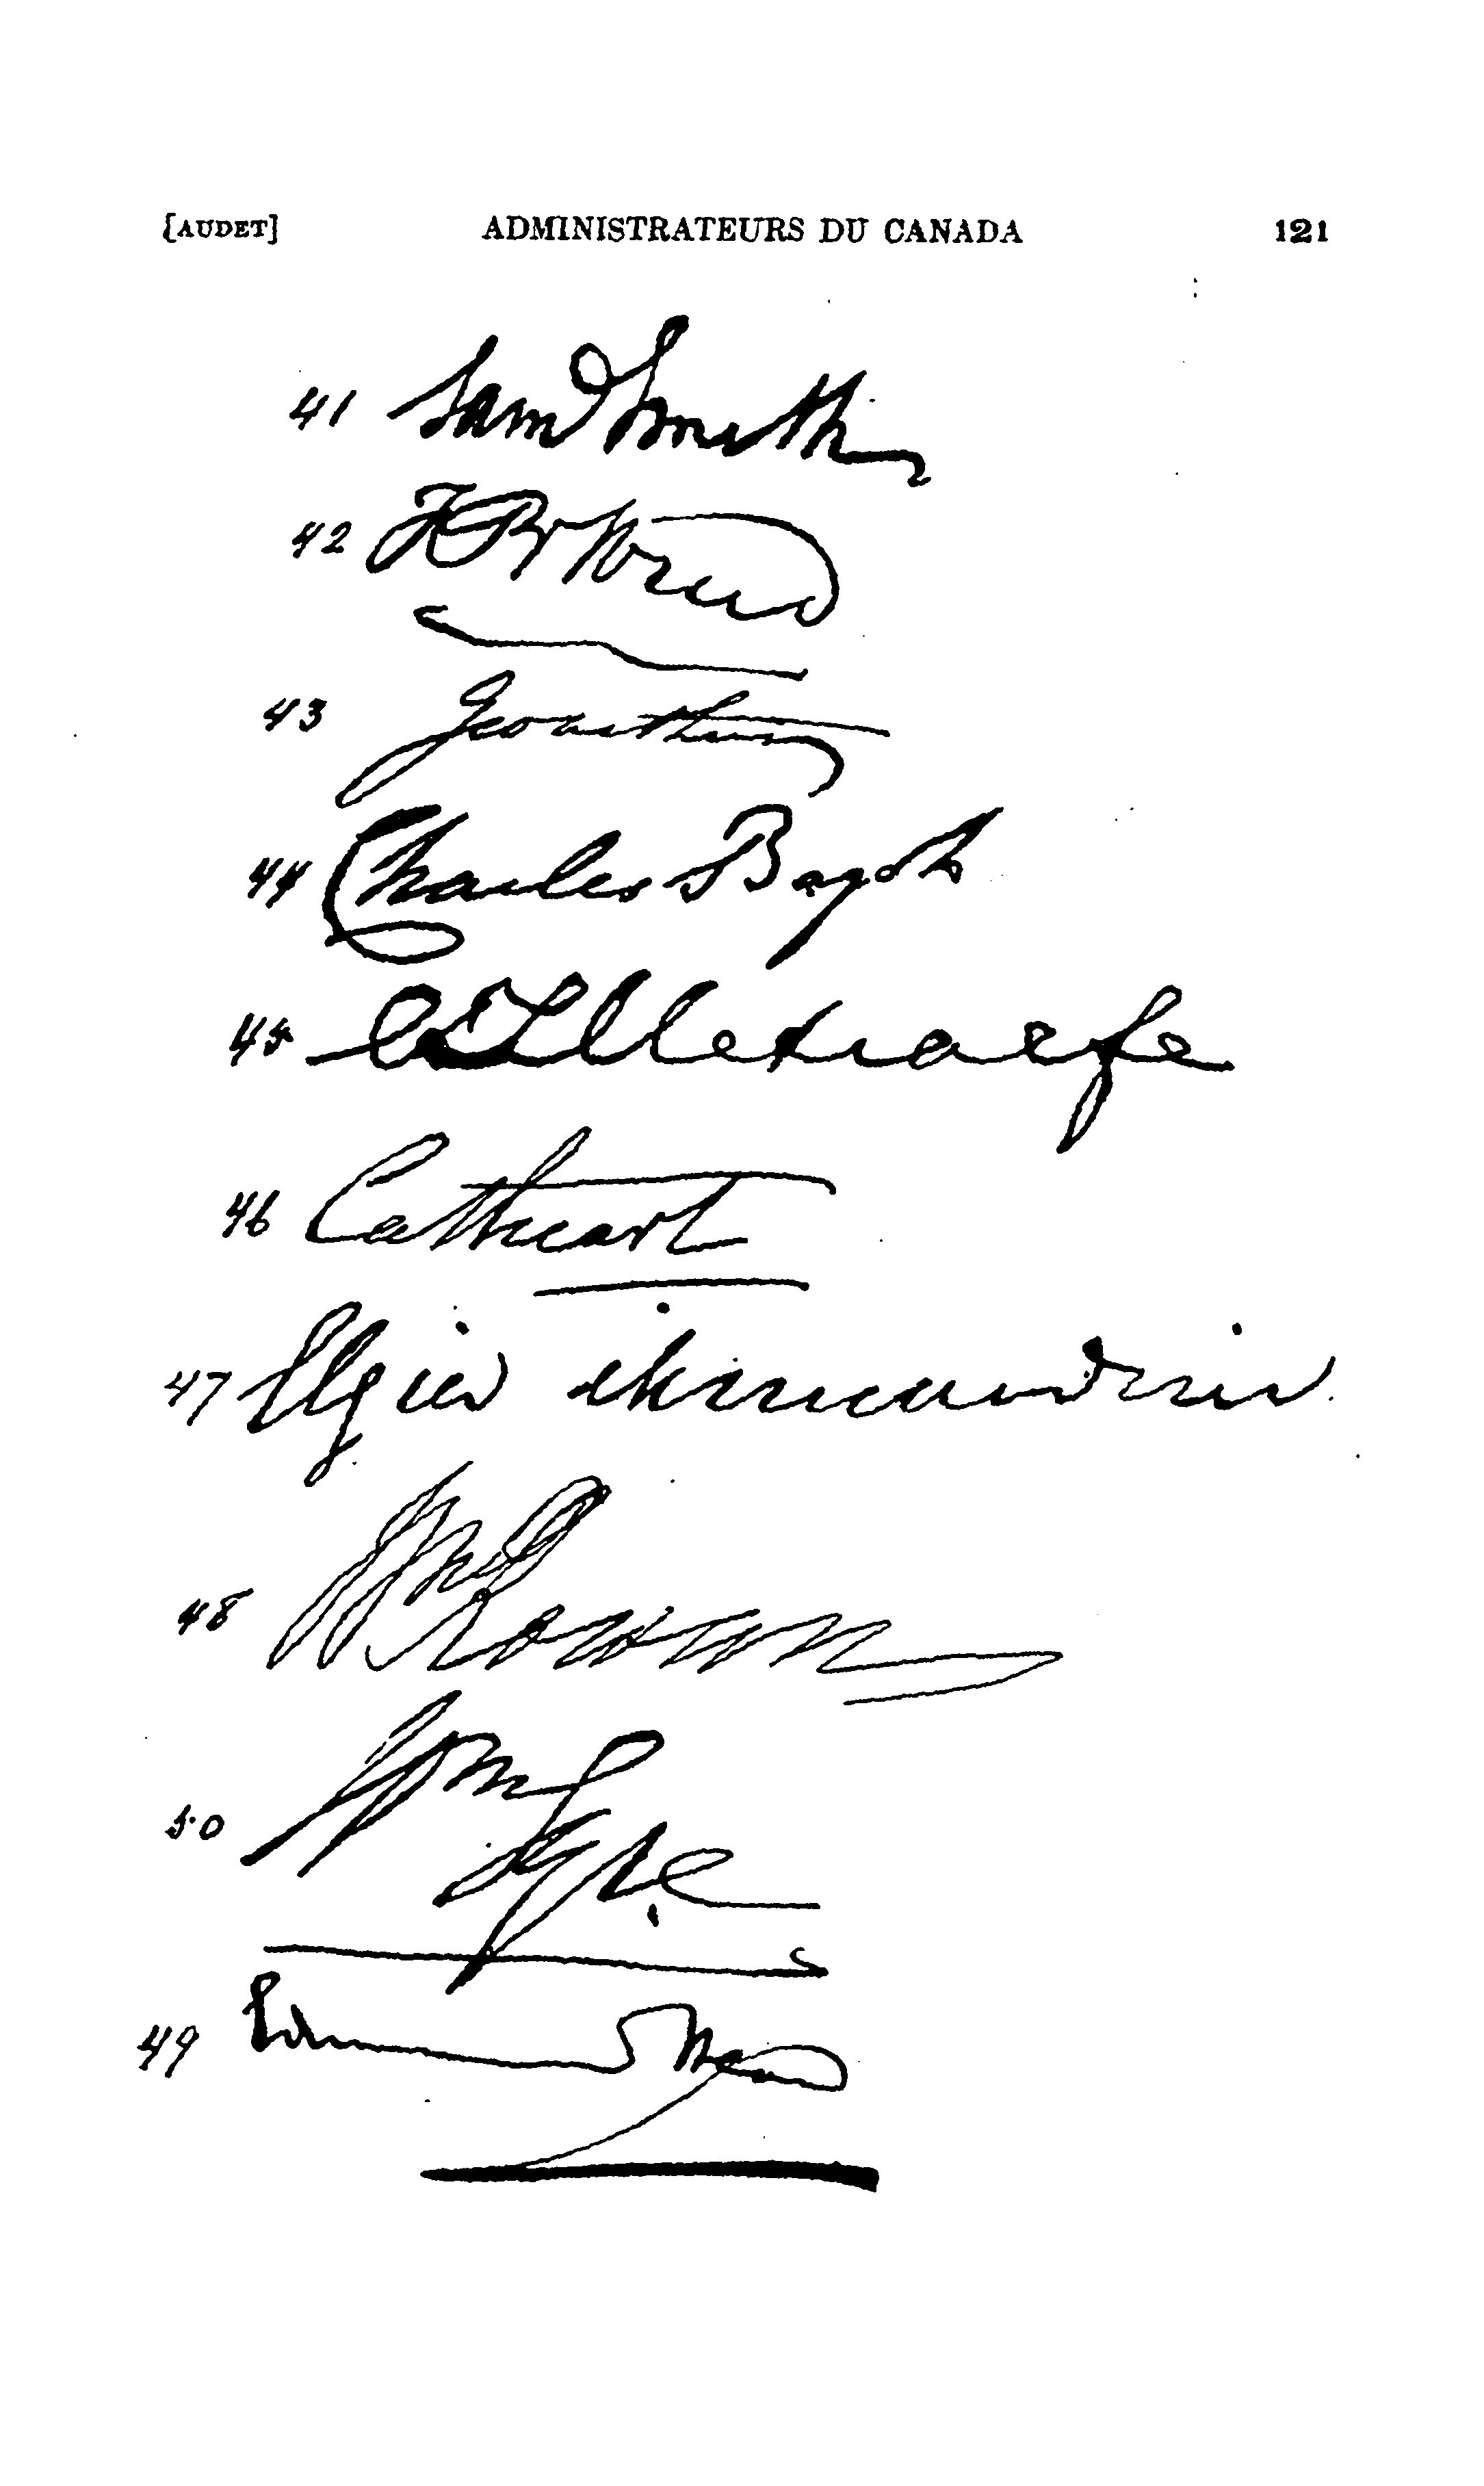 [AUDET] ADMINISTRATEURS DU CANADA 121
41 Saml Smith
42
43 Geo Arthur
44 Charles Bagot
45 C T Metcalfe
46 Cathcart
47 Elgin & Kincardine
48 Wm Rowan
50 Wm Eyre
49 Edmund Head